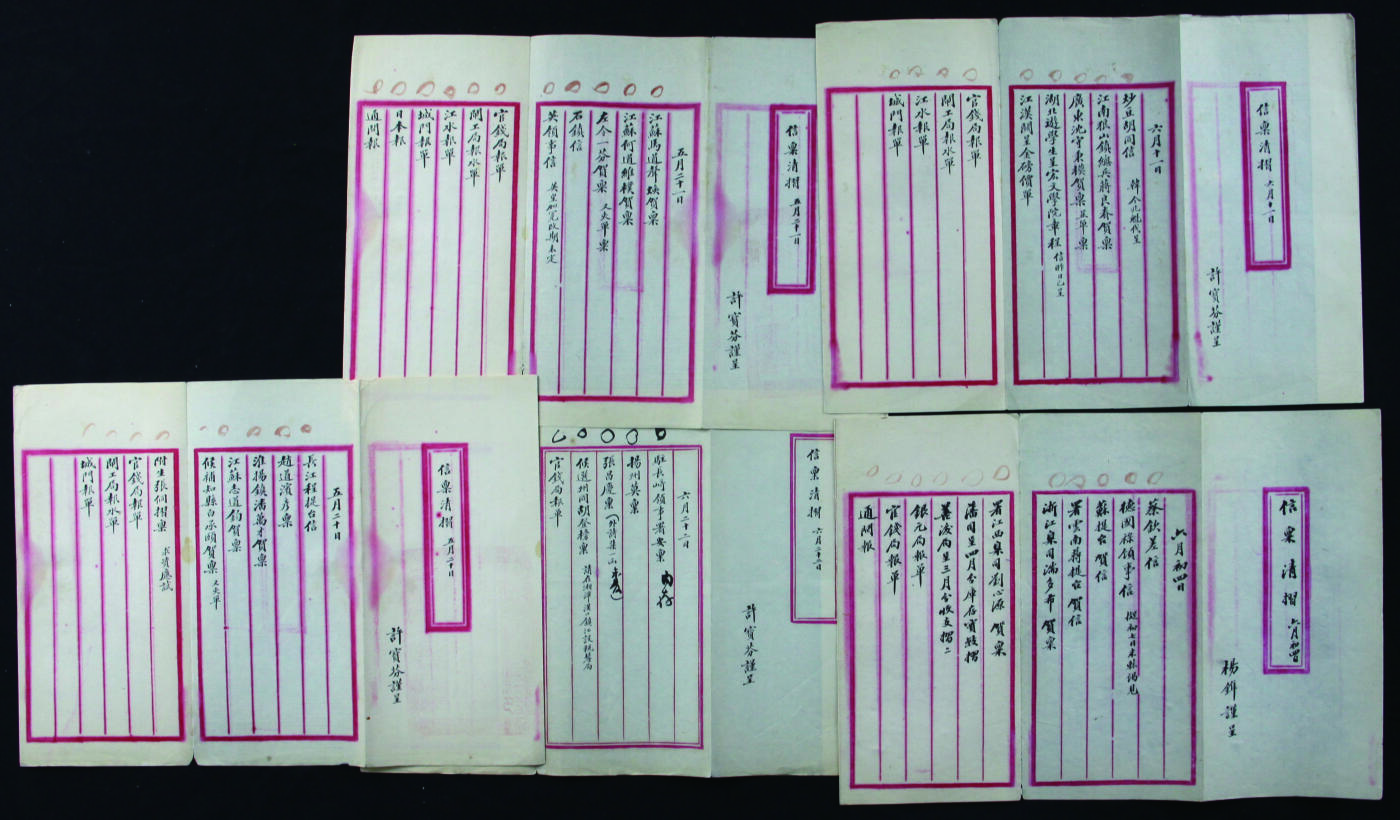 信稟清摺 五月二十一日
許寶芬謹呈
五月二十一日
江蘇馬道聲煥賀稟
江蘇何道維樸賀稟
左令一芬賀稟 又夾單稟
石鎮信
英領事信 英皇加冕改期未定
官錢局報單
關工局報水單
江水報單
城門報單
日本報
通聞報
信稟清摺 六月十一日
許寶芬謹呈
六月十一日
炒豆胡同信 韓令兆魁代呈
江南狼山鎮總兵蔣良春賀稟
廣東沈守秉模賀稟 並單稟
湖北遊學生呈宏文學院章程 信昨日已呈
江漢關呈金磅價單
官錢局報單
關工局報水單
江水報單
城門報單
信稟清摺 五月二十日
許寶芬謹呈
五月二十日
長江程提台信
趙道濱彥稟
淮揚鎮潘萬才賀稟
江蘇志道鈞賀稟
候補知縣白承頤賀稟 又夾單
附生張侗摺稟 求賞應試
官錢局報單
關工局報水單
城門報單
信稟清摺 六月二十二日
許寶芬謹呈
六月二十二日
駐長崎領事署安稟
揚州英稟
張昌慶稟
候選州同胡登榜稟 請在湘潭漢口鎮江設税釐局
官錢局報單
信稟清摺 六月初四日
楊鎔謹呈
六月初四日
蔡欽差信
德國祿領事信 擬初七日來轅謁見
蘇提台賀信
署雲南蔣提台賀信
浙江臬司湍多布賀稟
署江西臬司劉心源賀稟
藩司呈四月分庫存實數摺
善後局呈三月分收支摺二
銀元局報單
官錢局報單
通聞報